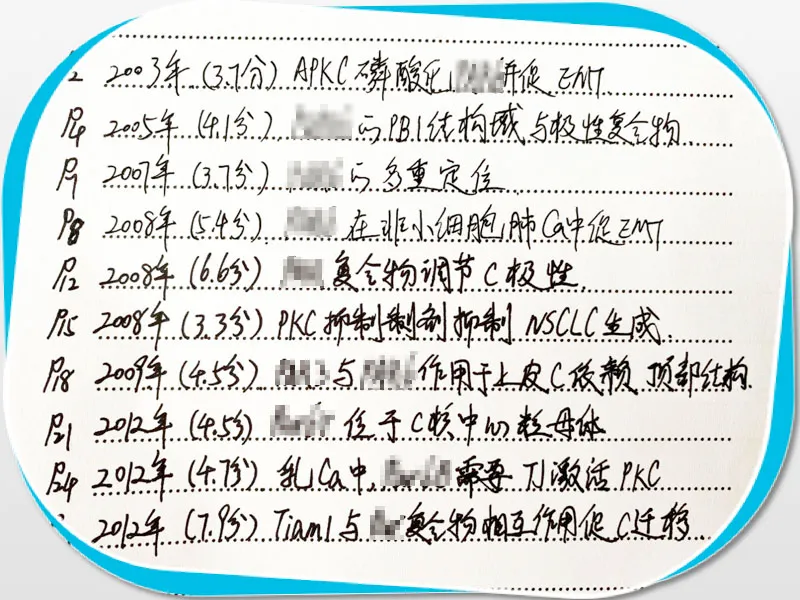 2 2003年(3.7分) APKC磷酸化 并促EMT
P4 2005年(4.1分) 的PB1结构域与极性复合物
P7 2007年(3.7分) 的多重定位
P8 2008年(5.4分) 在非小细胞肺Ca中促EMT
P12 2008年(6.6分) 复合物调节C极性
P15 2008年(3.3分) PKC抑制制剂抑制NSCLC生成
P18 2009年(4.5分) 与 作用于上皮C依赖顶部结构
P21 2012年(4.5分) 位于C核中的粒母体
P24 2012年(4.7分) 乳Ca中, 需要TJ激活PKC
2012年(7.9分) Tiam1与 复合物相互作用促C迁移